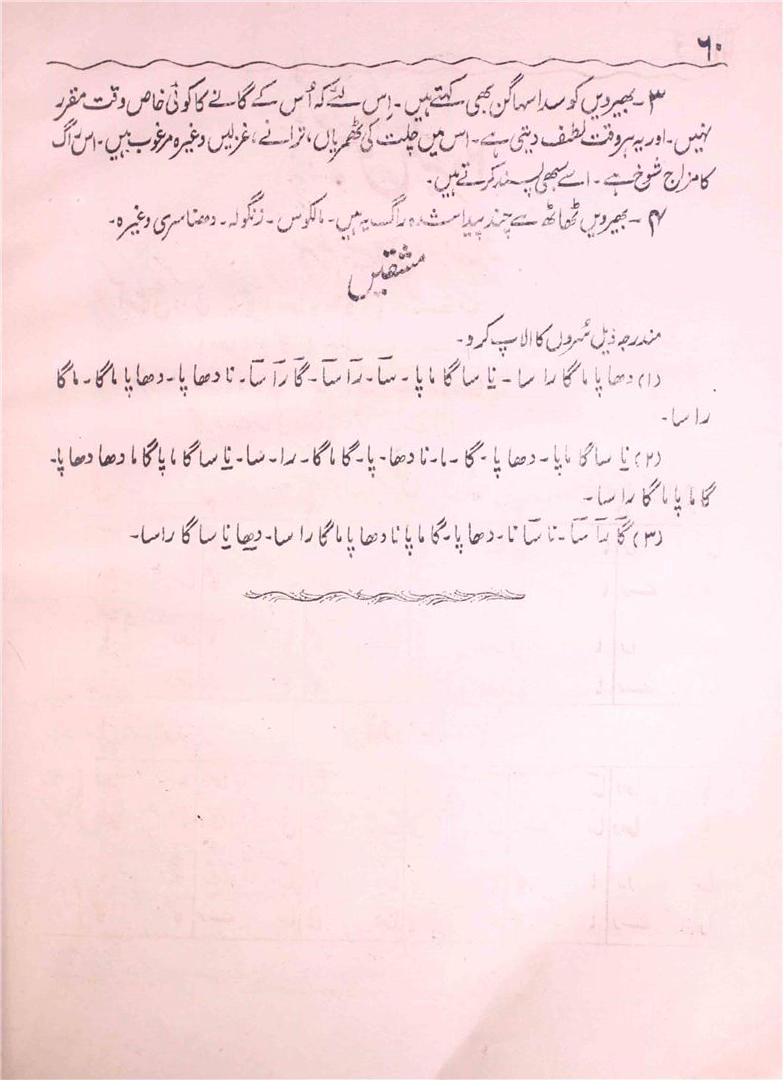 ۶۰
۳ - بھیرویں کو سدا سہاگن بھی کہتے ہیں - اِس لئے کہ اُس کے گانے کا کوئی خاص وقت مقرر
نہیں - اور یہ ہر وقت لطف دیتی ہے - اس میں چلت کی ٹھمریاں، ترانے، غزلیں وغیرہ مرغوب ہیں - اس راگ
کا مزاج شوخ ہے - اسے سبھی پسند کرتے ہیں -
۴ - بھیرویں ٹھاٹھ سے چند پیدا شدہ راگ یہ ہیں - مالکوس - زنگولہ - دھناسری وغیرہ -
مشقیں
مندرجہ ذیل سُروں کا الاپ کرو -
(۱) دھا پا ما گا را سا - نا سا گا ما پا - سا - را سا - گا را سا - نا دھا پا - دھا پا ما گا - ما گا
را سا -
(۲) نا سا گا ما پا - دھا پا - گا - ما - نا دھا - پا - گا ما گا - را - سا - نا سا گا ما پا گا ما دھا دھا پا -
گا ما پا ما گا را سا -
(۳) گا را سا - نا سا نا - دھا پا - گا ما پا نا دھا پا ما گا را سا - دھا نا سا گا را سا -